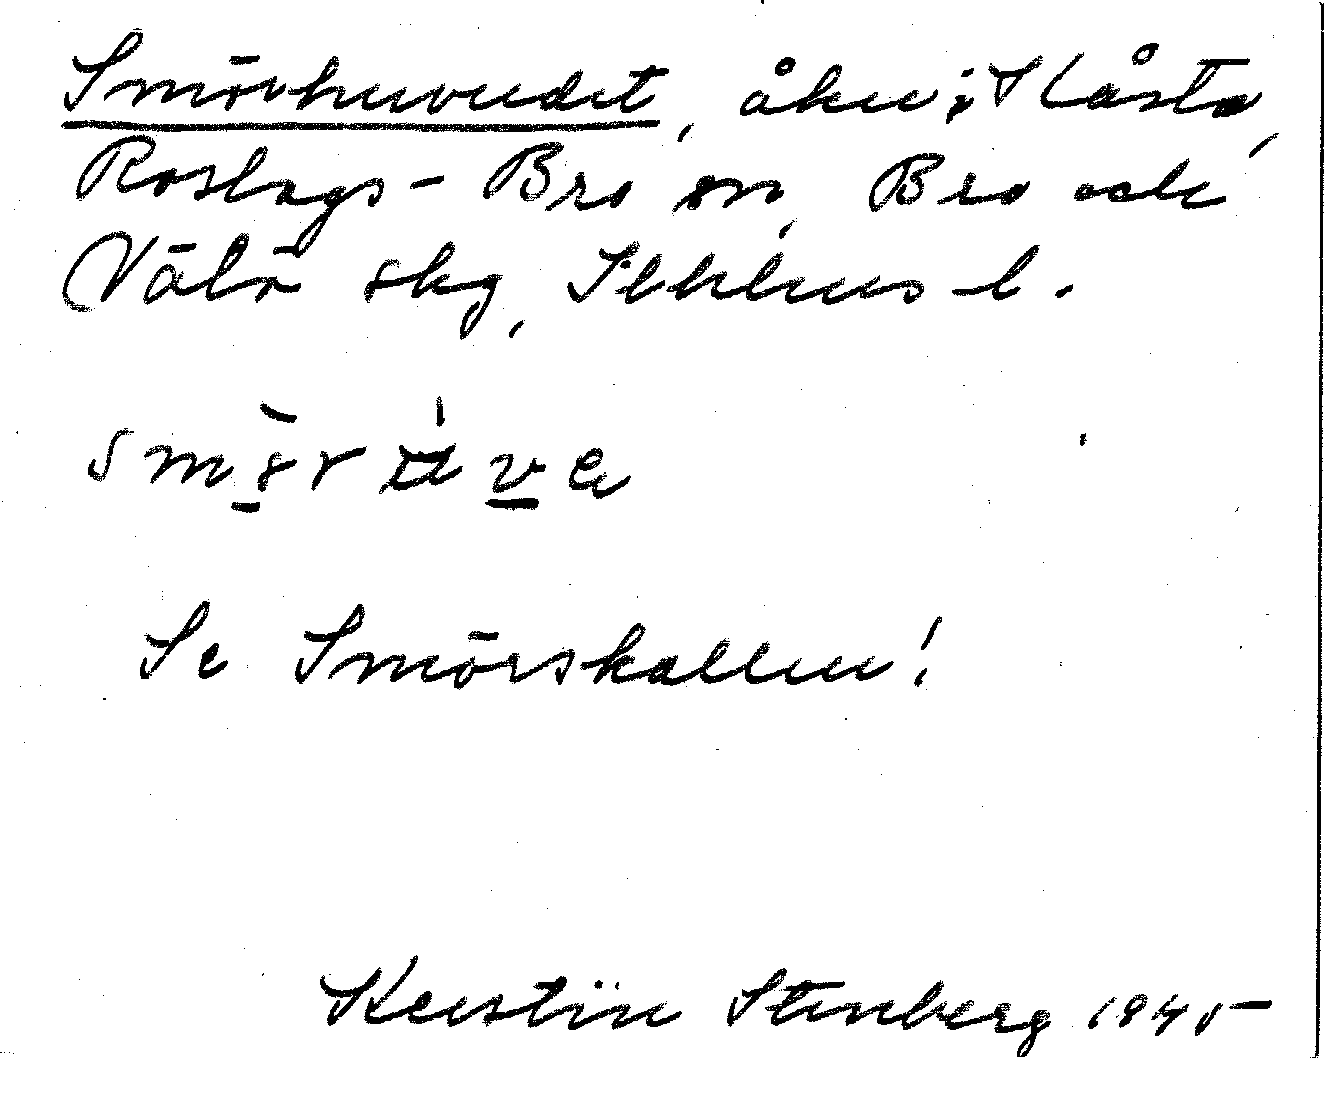 Smörhuvudet, åker i Kåsta,
Roslags-Bro sn, Bro och
Vätö skg, Sthlms l.
Se Smörskallen!
Kerstin Stenberg 1945